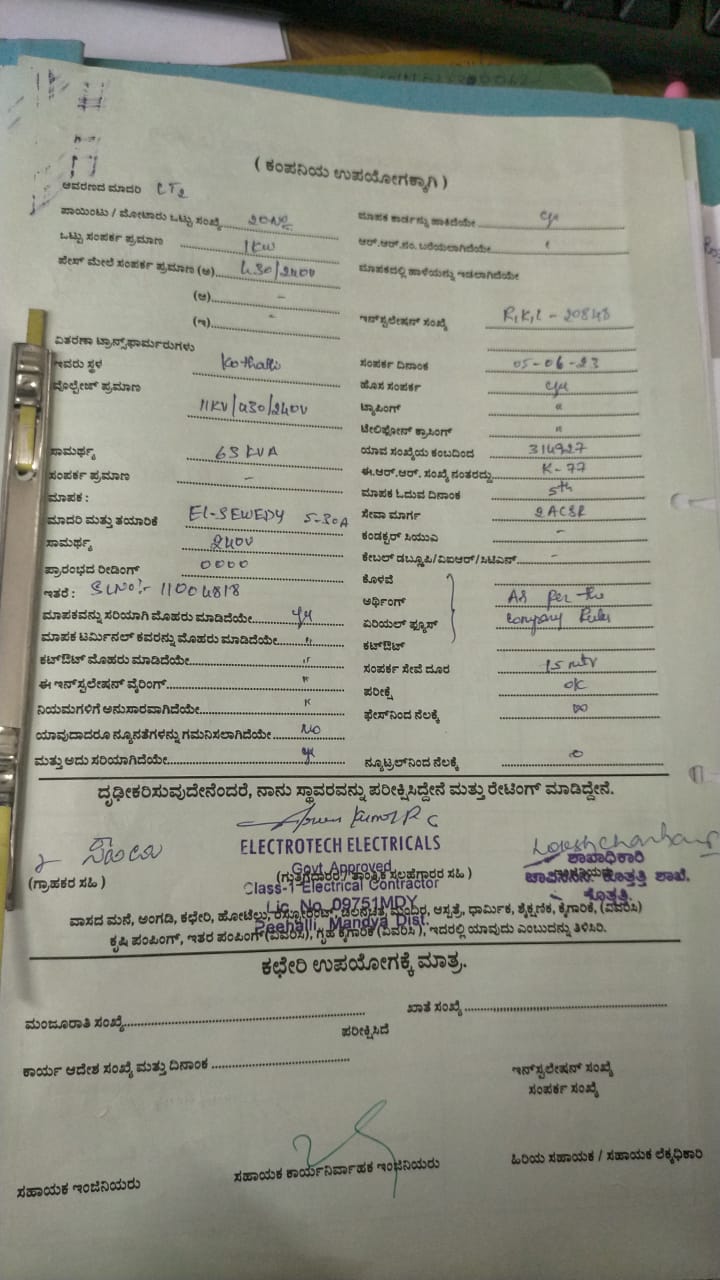 ( ಕಂಪನಿಯ ಉಪಯೋಗಕ್ಕಾಗಿ )
ಆವರಣದ ಮಾದರಿ CT2
ಪಾಯಿಂಟು / ಮೋಟಾರು ಒಟ್ಟು ಸಂಖ್ಯೆ 20Nos
ಮಾಪಕ ಕಾರ್ಡನ್ನು ಹಾಕಿದೆಯೇ yes
ಒಟ್ಟು ಸಂಪರ್ಕ ಪ್ರಮಾಣ 1KW
ಆರ್.ಆರ್.ನಂ. ಬರೆಯಲಾಗಿದೆಯೇ "
ಪೇಸ್ ಮೇಲೆ ಸಂಪರ್ಕ ಪ್ರಮಾಣ (ಅ) 430/240V
ಮಾಪಕದಲ್ಲಿ ಹಾಳೆಯನ್ನು ಇಡಲಾಗಿದೆಯೇ
(ಆ) -
(ಇ) -
ಇನ್‌ಸ್ಟಲೇಷನ್ ಸಂಖ್ಯೆ R,K,L - 20848
ವಿತರಣಾ ಟ್ರಾನ್ಸ್‌ಫಾರ್ಮರುಗಳು
ಇವರು ಸ್ಥಳ Kothathi
ಸಂಪರ್ಕ ದಿನಾಂಕ 05-06-23
ವೊಲ್ಟೇಜ್ ಪ್ರಮಾಣ
ಹೊಸ ಸಂಪರ್ಕ yes
11KV/430/240V
ಟ್ಯಾಪಿಂಗ್ "
ಟೇಲಿಫೋನ್ ಕ್ರಾಸಿಂಗ್ "
ಸಾಮರ್ಥ್ಯ 63 KVA
ಯಾವ ಸಂಖ್ಯೆಯ ಕಂಬದಿಂದ 314927
ಸಂಪರ್ಕ ಪ್ರಮಾಣ -
ಈ.ಆರ್.ಆರ್. ಸಂಖ್ಯೆ ನಂತರದ್ದು K-77
ಮಾಪಕ :
ಮಾಪಕ ಓದುವ ದಿನಾಂಕ 5th
ಮಾದರಿ ಮತ್ತು ತಯಾರಿಕೆ EL-SEWEDY 5-30A
ಸೇವಾ ಮಾರ್ಗ 2ACSR
ಸಾಮರ್ಥ್ಯ 240V
ಕಂಡಕ್ಟರ್ ಸಿಯುವಿ -
ಪ್ರಾರಂಭದ ರೀಡಿಂಗ್ 0000
ಕೇಬಲ್ ಡಬ್ಲೂಪಿ/ವಿಐಆರ್/ಸಿಟಿಎಸ್ -
ಇತರೆ : SLNO:- 11004818
ಕೊಳವೆ
ಅರ್ಥಿಂಗ್ As per the
ಮಾಪಕವನ್ನು ಸರಿಯಾಗಿ ಮೊಹರು ಮಾಡಿದೆಯೇ yes
ಏರಿಯಲ್ ಫ್ಯೂಸ್ Company Rules
ಮಾಪಕ ಟರ್ಮಿನಲ್ ಕವರನ್ನು ಮೊಹರು ಮಾಡಿದೆಯೇ "
ಕಟ್‌ಔಟ್
ಕಟ್‌ಔಟ್ ಮೊಹರು ಮಾಡಿದೆಯೇ "
ಸಂಪರ್ಕ ಸೇವೆ ದೂರ 15 mtr
ಈ ಇನ್‌ಸ್ಟಲೇಷನ್ ವೈರಿಂಗ್ "
ಪರೀಕ್ಷೆ OK
ನಿಯಮಗಳಿಗೆ ಅನುಸಾರವಾಗಿದೆಯೇ "
ಫೇಸ್‌ನಿಂದ ನೆಲಕ್ಕೆ ∞
ಯಾವುದಾದರೂ ನ್ಯೂನತೆಗಳನ್ನು ಗಮನಿಸಲಾಗಿದೆಯೇ No
ಮತ್ತು ಅದು ಸರಿಯಾಗಿದೆಯೇ yes
ನ್ಯೂಟ್ರಲ್‌ನಿಂದ ನೆಲಕ್ಕೆ 0
ದೃಢೀಕರಿಸುವುದೇನೆಂದರೆ, ನಾನು ಸ್ಥಾವರವನ್ನು ಪರೀಕ್ಷಿಸಿದ್ದೇನೆ ಮತ್ತು ರೇಟಿಂಗ್ ಮಾಡಿದ್ದೇನೆ.
ELECTROTECH ELECTRICALS
Govt Approved
ಶಾಖಾಧಿಕಾರಿ
(ಗ್ರಾಹಕರ ಸಹಿ )
(ಗುತ್ತಿಗೆದಾರರ / ತಾಂತ್ರಿಕ ಸಲಹೆಗಾರರ ಸಹಿ )
Class-1 Electrical Contractor
ಕೊತ್ತತ್ತಿ ಶಾಖೆ.
ಕೊತ್ತತ್ತಿ.
Lic. No. 09751MDY
ವಾಸದ ಮನೆ, ಅಂಗಡಿ, ಕಛೇರಿ, ಹೋಟೆಲು, ರೆಸ್ಟೋರೆಂಟ್, ಚಲನಚಿತ್ರ ಮಂದಿರ, ಆಸ್ಪತ್ರೆ, ಧಾರ್ಮಿಕ, ಶೈಕ್ಷಣಿಕ, ಕೈಗಾರಿಕೆ, (ವಿವರಿಸಿ)
Peehalli, Mandya Dist.
ಕೃಷಿ ಪಂಪಿಂಗ್, ಇತರ ಪಂಪಿಂಗ್ (ವಿವರಿಸಿ), ಗೃಹ ಕೈಗಾರಿಕೆ (ವಿವರಿಸಿ ), ಇದರಲ್ಲಿ ಯಾವುದು ಎಂಬುದನ್ನು ತಿಳಿಸಿರಿ.
ಕಛೇರಿ ಉಪಯೋಗಕ್ಕೆ ಮಾತ್ರ.
ಮಂಜೂರಾತಿ ಸಂಖ್ಯೆ
ಖಾತೆ ಸಂಖ್ಯೆ
ಪರೀಕ್ಷಿಸಿದೆ
ಕಾರ್ಯ ಆದೇಶ ಸಂಖ್ಯೆ ಮತ್ತು ದಿನಾಂಕ
ಇನ್‌ಸ್ಟಲೇಷನ್ ಸಂಖ್ಯೆ
ಸಂಪರ್ಕ ಸಂಖ್ಯೆ
ಸಹಾಯಕ ಇಂಜಿನಿಯರು
ಸಹಾಯಕ ಕಾರ್ಯನಿರ್ವಾಹಕ ಇಂಜಿನಿಯರು
ಹಿರಿಯ ಸಹಾಯಕ / ಸಹಾಯಕ ಲೆಕ್ಕಧಿಕಾರಿ